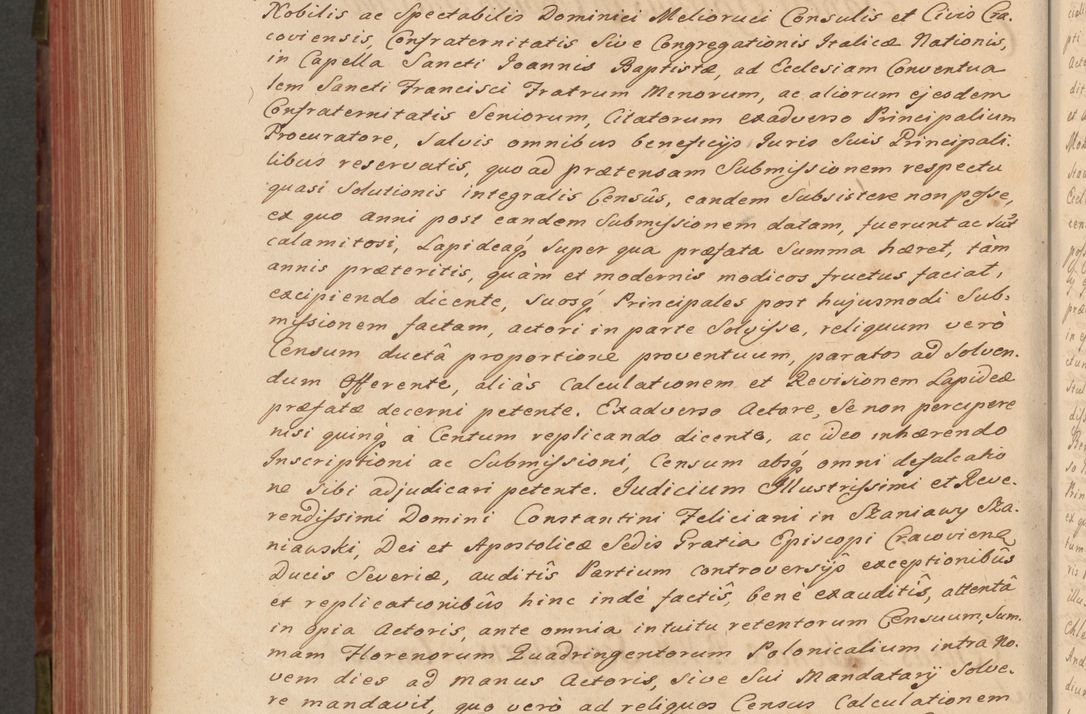 Nobilis ac Spectabilis Dominici Melioruci Consulis et Civis Cra-
coviensis, Confraternitatis Sive Congregationis Italicæ Nationis,
in Capella Sancti Joannis Baptistæ, ad Ecclesiam Conventua
lem Sancti Francisci Fratrum Menorum, ac aliorum ejesdem
Confraternitatis Seniorum, Citatorum exadverso Principalium
Procuratore, Salvis omnibus beneficijs Juris Suis Principali-
libus reservatis, quo ad prætensam Submissionem respectu
quasi Solutionis integralis Censûs, eandem Subsistere non posse,
ex quo anni post eandem Submissionem datam, fuerunt ac Sut
calamitosi, Lapideaq, Super qua præfata Summa hæret, tàm
annis præteritis, quàm et modernis modicos fructus faciat,
excipiendo dicente, Suosq, Principales post hujusmodi Sub-
missionem factam, actori in parte Solvisse, reliquum verò
Censum ductâ proportione proventuum, paratos ad Solven-
dum Offerente, aliàs Calculationem et Revisionem Lapideæ
præfatæ decerni petente. Exadverso Actore, Se non percipere
nisi quinq, à Centum replicando dicente, ac ideo inhærendo
Inscriptioni ac Submissioni, Censum absq, omni defalcatio
ne Sibi adjudicari petente. Judicium Illustrissimi et Reve-
rendissimi Domini Constantini Feliciani in Szaniawy Sza-
niawski, Dei et Apostolicæ Sedis Gratia Episcopi Cracovien
Ducis Severiæ, auditîs Partium controversijs exceptionibûs
et replicationibûs hinc indè factîs, benè exauditîs, attentâ
inopia Actoris, ante omnia intuitu retentorum Censuum, Sum-
mam Florenorum Quadringentorum Polonicalium intra No-
vem dies ad manus Actoris, Sive Sui Mandatarij Solve-
re mandavit, quo verò ad reliquos Census Calculationem